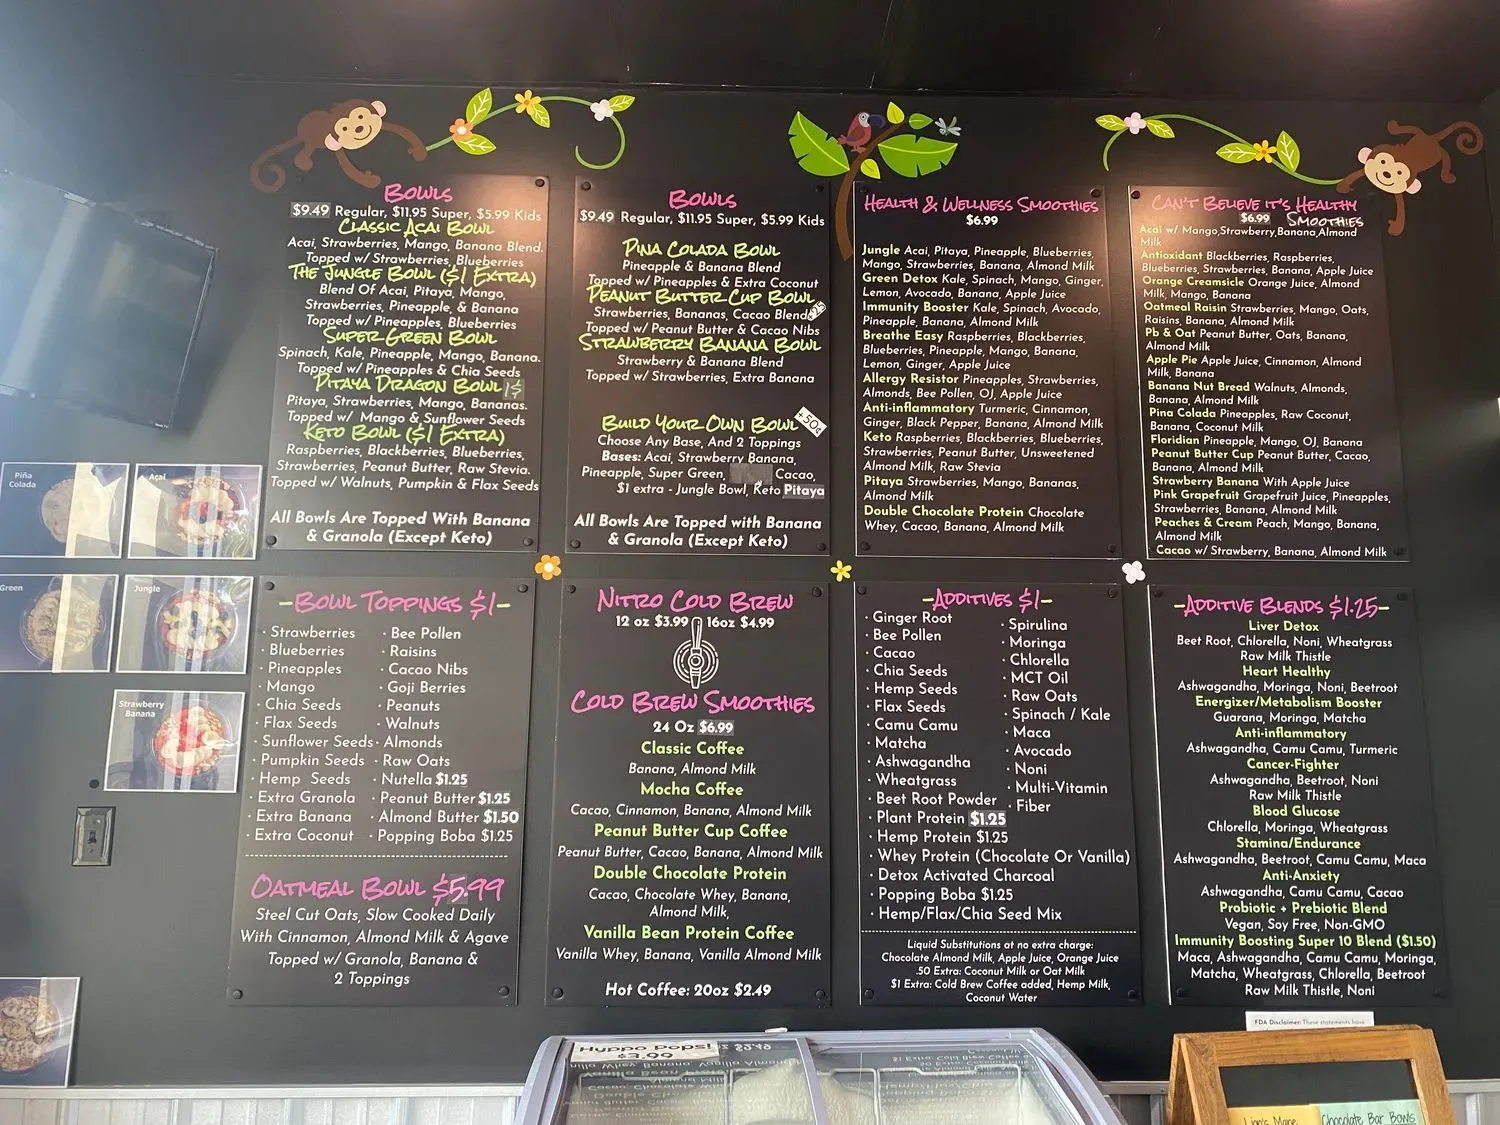 BOWLS
$9.49 Regular, $11.95 Super, $5.99 Kids
CLASSIC ACAI BOWL
Acai, Strawberries, Mango, Banana Blend.
Topped w/ Strawberries, Blueberries
THE JUNGLE BOWL ($1 EXTRA)
Blend Of Acai, Pitaya, Mango,
Strawberries, Pineapple, & Banana
Topped w/ Pineapples, Blueberries
SUPER GREEN BOWL
Spinach, Kale, Pineapple, Mango, Banana.
Topped w/ Pineapples & Chia Seeds
PITAYA DRAGON BOWL 1$
Pitaya, Strawberries, Mango, Bananas.
Topped w/ Mango & Sunflower Seeds
KETO BOWL ($1 EXTRA)
Raspberries, Blackberries, Blueberries,
Strawberries, Peanut Butter, Raw Stevia.
Topped w/ Walnuts, Pumpkin & Flax Seeds
All Bowls Are Topped With Banana
& Granola (Except Keto)
BOWLS
$9.49 Regular, $11.95 Super, $5.99 Kids
PINA COLADA BOWL
Pineapple & Banana Blend
Topped w/ Pineapples & Extra Coconut
PEANUT BUTTER CUP BOWL
Strawberries, Bananas, Cacao Blend
Topped w/ Peanut Butter & Cacao Nibs
STRAWBERRY BANANA BOWL
Strawberry & Banana Blend
Topped w/ Strawberries, Extra Banana
BUILD YOUR OWN BOWL +50¢
Choose Any Base, And 2 Toppings
Bases: Acai, Strawberry Banana,
Pineapple, Super Green, Cacao,
$1 extra - Jungle Bowl, Keto Pitaya
All Bowls Are Topped with Banana
& Granola (Except Keto)
HEALTH & WELLNESS SMOOTHIES
$6.99
Jungle Acai, Pitaya, Pineapple, Blueberries,
Mango, Strawberries, Banana, Almond Milk
Green Detox Kale, Spinach, Mango, Ginger,
Lemon, Avocado, Banana, Apple Juice
Immunity Booster Kale, Spinach, Avocado,
Pineapple, Banana, Almond Milk
Breathe Easy Raspberries, Blackberries,
Blueberries, Pineapple, Mango, Banana,
Lemon, Ginger, Apple Juice
Allergy Resistor Pineapples, Strawberries,
Almonds, Bee Pollen, OJ, Apple Juice
Anti-inflammatory Turmeric, Cinnamon,
Ginger, Black Pepper, Banana, Almond Milk
Keto Raspberries, Blackberries, Blueberries,
Strawberries, Peanut Butter, Unsweetened
Almond Milk, Raw Stevia
Pitaya Strawberries, Mango, Bananas,
Almond Milk
Double Chocolate Protein Chocolate
Whey, Cacao, Banana, Almond Milk
CAN'T BELIEVE IT'S HEALTHY
$6.99 SMOOTHIES
Acai w/ Mango,Strawberry,Banana,Almond
Milk
Antioxidant Blackberries, Raspberries,
Blueberries, Strawberries, Banana, Apple Juice
Orange Creamsicle Orange Juice, Almond
Milk, Mango, Banana
Oatmeal Raisin Strawberries, Mango, Oats,
Raisins, Banana, Almond Milk
Pb & Oat Peanut Butter, Oats, Banana,
Almond Milk
Apple Pie Apple Juice, Cinnamon, Almond
Milk, Banana
Banana Nut Bread Walnuts, Almonds,
Banana, Almond Milk
Pina Colada Pineapples, Raw Coconut,
Banana, Coconut Milk
Floridian Pineapple, Mango, OJ, Banana
Peanut Butter Cup Peanut Butter, Cacao,
Banana, Almond Milk
Strawberry Banana With Apple Juice
Pink Grapefruit Grapefruit Juice, Pineapples,
Strawberries, Banana, Almond Milk
Peaches & Cream Peach, Mango, Banana,
Almond Milk
Cacao w/ Strawberry, Banana, Almond Milk
Piña
Colada
Acai
Green
Jungle
Strawberry
Banana
-BOWL TOPPINGS $1-
· Strawberries
· Blueberries
· Pineapples
· Mango
· Chia Seeds
· Flax Seeds
· Sunflower Seeds
· Pumpkin Seeds
· Hemp Seeds
· Extra Granola
· Extra Banana
· Extra Coconut
· Bee Pollen
· Raisins
· Cacao Nibs
· Goji Berries
· Peanuts
· Walnuts
· Almonds
· Raw Oats
· Nutella $1.25
· Peanut Butter $1.25
· Almond Butter $1.50
· Popping Boba $1.25
OATMEAL BOWL $5.99
Steel Cut Oats, Slow Cooked Daily
With Cinnamon, Almond Milk & Agave
Topped w/ Granola, Banana &
2 Toppings
NITRO COLD BREW
12 oz $3.99 16oz $4.99
COLD BREW SMOOTHIES
24 Oz $6.99
Classic Coffee
Banana, Almond Milk
Mocha Coffee
Cacao, Cinnamon, Banana, Almond Milk
Peanut Butter Cup Coffee
Peanut Butter, Cacao, Banana, Almond Milk
Double Chocolate Protein
Cacao, Chocolate Whey, Banana,
Almond Milk,
Vanilla Bean Protein Coffee
Vanilla Whey, Banana, Vanilla Almond Milk
Hot Coffee: 20oz $2.49
-ADDITIVES $1-
· Ginger Root
· Bee Pollen
· Cacao
· Chia Seeds
· Hemp Seeds
· Flax Seeds
· Camu Camu
· Matcha
· Ashwagandha
· Wheatgrass
· Beet Root Powder
· Plant Protein $1.25
· Hemp Protein $1.25
· Whey Protein (Chocolate Or Vanilla)
· Detox Activated Charcoal
· Popping Boba $1.25
· Hemp/Flax/Chia Seed Mix
· Spirulina
· Moringa
· Chlorella
· MCT Oil
· Raw Oats
· Spinach / Kale
· Maca
· Avocado
· Noni
· Multi-Vitamin
· Fiber
Liquid Substitutions at no extra charge:
Chocolate Almond Milk, Apple Juice, Orange Juice
.50 Extra: Coconut Milk or Oat Milk
$1 Extra: Cold Brew Coffee added, Hemp Milk,
Coconut Water
-ADDITIVE BLENDS $1.25-
Liver Detox
Beet Root, Chlorella, Noni, Wheatgrass
Raw Milk Thistle
Heart Healthy
Ashwagandha, Moringa, Noni, Beetroot
Energizer/Metabolism Booster
Guarana, Moringa, Matcha
Anti-inflammatory
Ashwagandha, Camu Camu, Turmeric
Cancer-Fighter
Ashwagandha, Beetroot, Noni
Raw Milk Thistle
Blood Glucose
Chlorella, Moringa, Wheatgrass
Stamina/Endurance
Ashwagandha, Beetroot, Camu Camu, Maca
Anti-Anxiety
Ashwagandha, Camu Camu, Cacao
Probiotic + Prebiotic Blend
Vegan, Soy Free, Non-GMO
Immunity Boosting Super 10 Blend ($1.50)
Maca, Ashwagandha, Camu Camu, Moringa,
Matcha, Wheatgrass, Chlorella, Beetroot
Raw Milk Thistle, Noni
FDA Disclaimer: These statements have
Hyppo Pops!
$3.99
Lion's Mane
Chocolate Bar Bowls